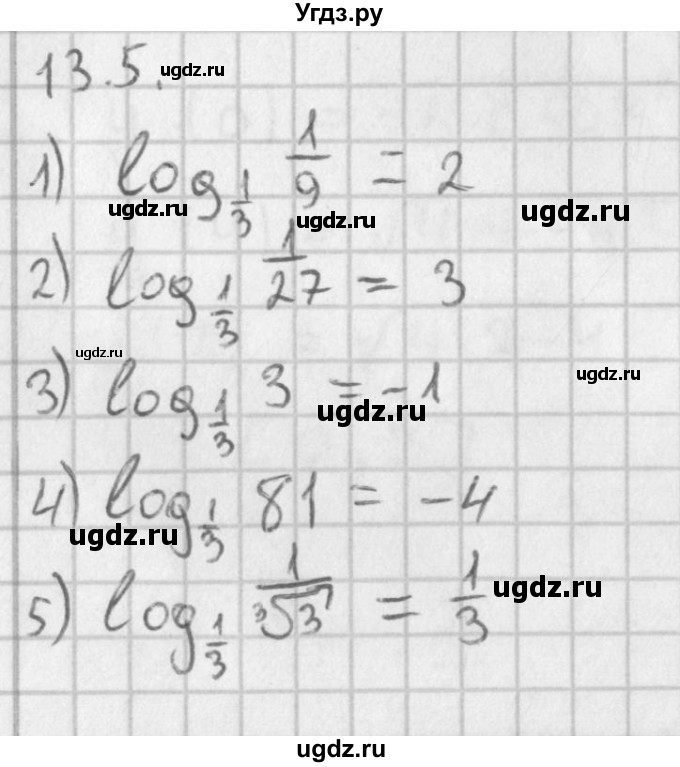 Угдз.ру
13.5. ugdz.ru
1) log_{1/3} 1/9 = 2
ugdz.ru ugdz.ru ugdz.ru
2) log_{1/3} 1/27 = 3
ugdz.ru
3) log_{1/3} 3 = -1
ugdz.ru ugdz.ru
4) log_{1/3} 81 = -4
ugdz.ru
5) log_{1/3} 1/∛3 = 1/3
ugdz.ru
ugdz.ru